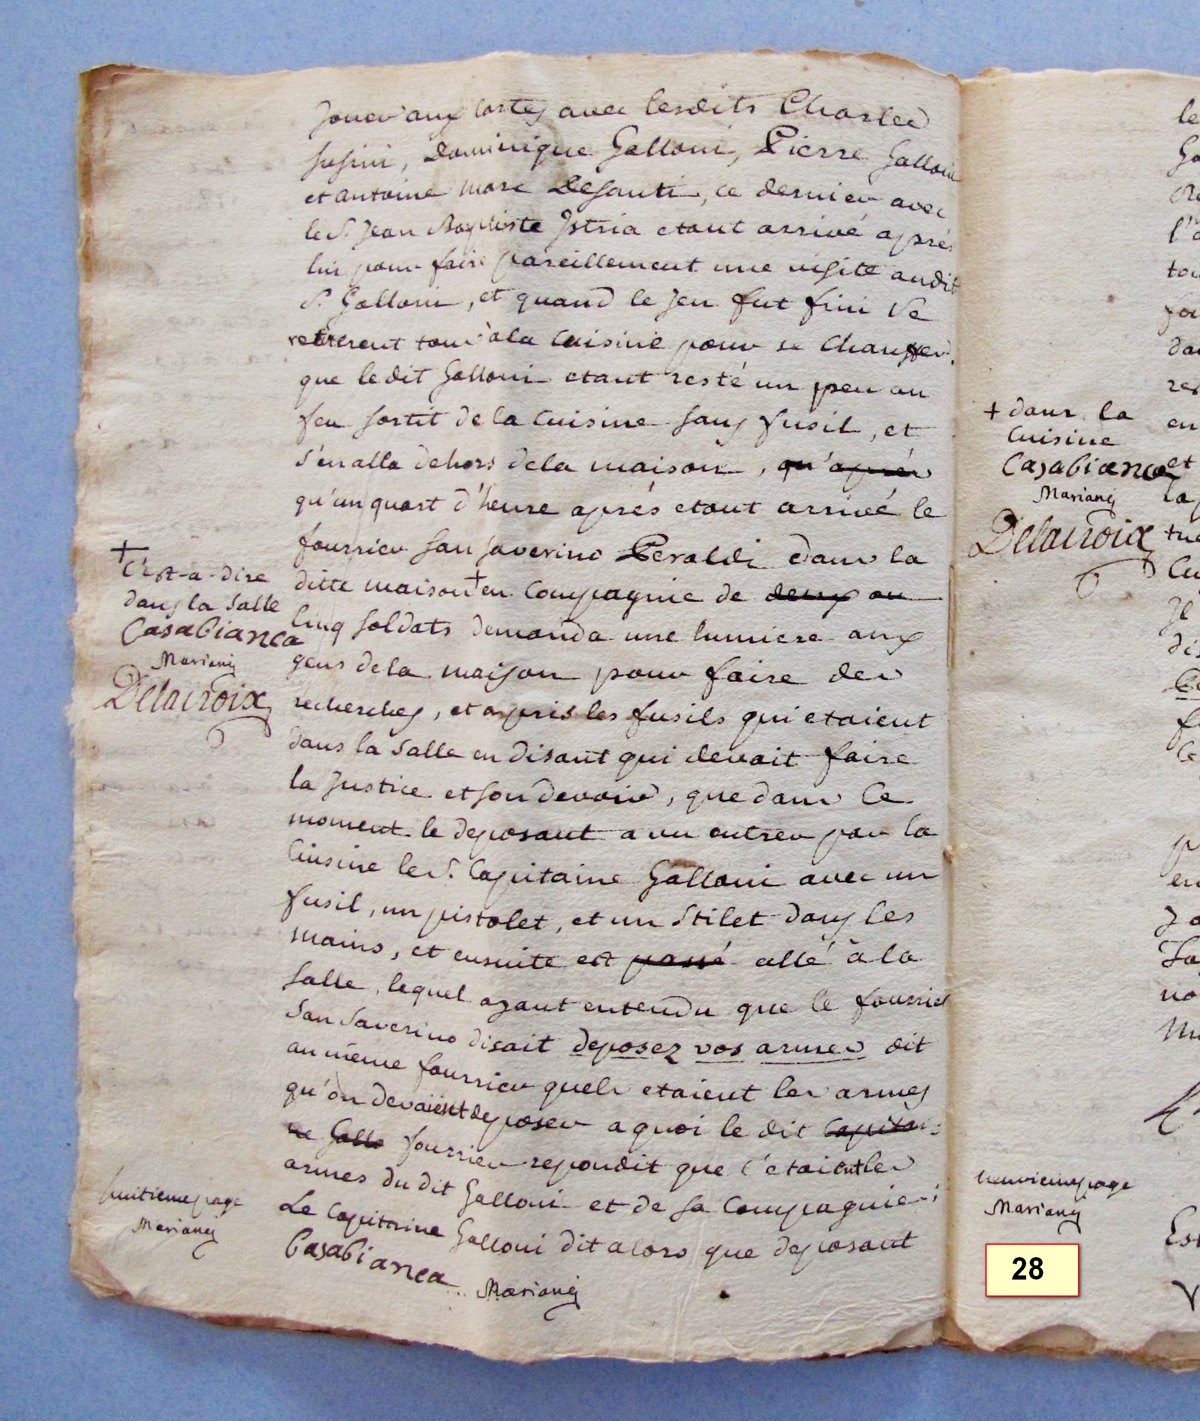 Jouer aux cartes avec lesdits Charles
Susini, Dominique Galloni, Pierre Galloni
et antoine marc Desanti, ce dernier avec
le S.r Jean Baptiste Istria etant arrivé après
lui pour faire pareillement une visite audit
S.r Galloni, et quand le Jeu fut fini Se
retirerent tous a la Cuisine pour se Chauffer.
que ledit Galloni etant resté un peu au
feu sortit de la Cuisine sans fusil, et
s'en alla dehors dela maison, qu'après
qu'un quart d'heure après etant arrivé le
fourrier San Saverino Peraldi dans la
ditte maison + en Compagnie de deux ou
Cinq soldats demanda une lumiere aux
gens dela maison pour faire des
recherches, et a pris les fusils qui etaient
dans la Salle en disant qui devait faire
la Justice et son devoir, que dans Ce
moment le deposant a vu entrer par la
Cuisine le S.r Capitaine Galloni avec un
fusil, un pistolet, et un Stilet dans les
mains, et ensuite est passé allé à la
Salle, lequel ayant entendu que le fourrier
San Saverino disait deposez vos armes dit
au même fourrier quels etaient les armes
qu'on devaient deposer a quoi le dit Capitai=
ne Gallo fourrier repondit que c'etaient les
armes du dit Galloni et de sa Compagnie;
Le Capitaine Galloni dit alors que deposant
Casabianca Mariani
+
C'est-a-dire
dans la Salle
Casabianca
Mariani
Delacroix
huitieme page
Mariani
+ dans la
Cuisine
Casabianca
Mariani
Delacroix
neuvieme page
Mariani
28
le
l'a
et
en